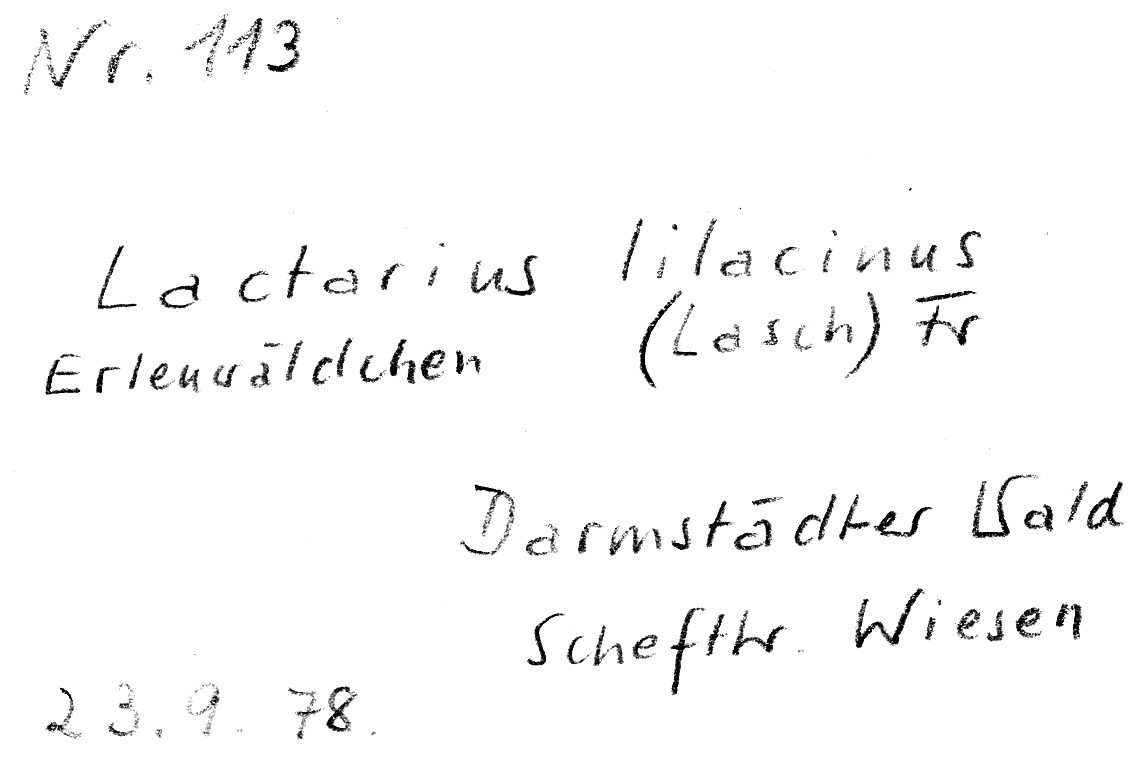 Nr. 113
Lactarius lilacinus
(Lasch) Fr
Erlenwäldchen
Darmstädter Wald
Schefthr. Wiesen
23.9.78.